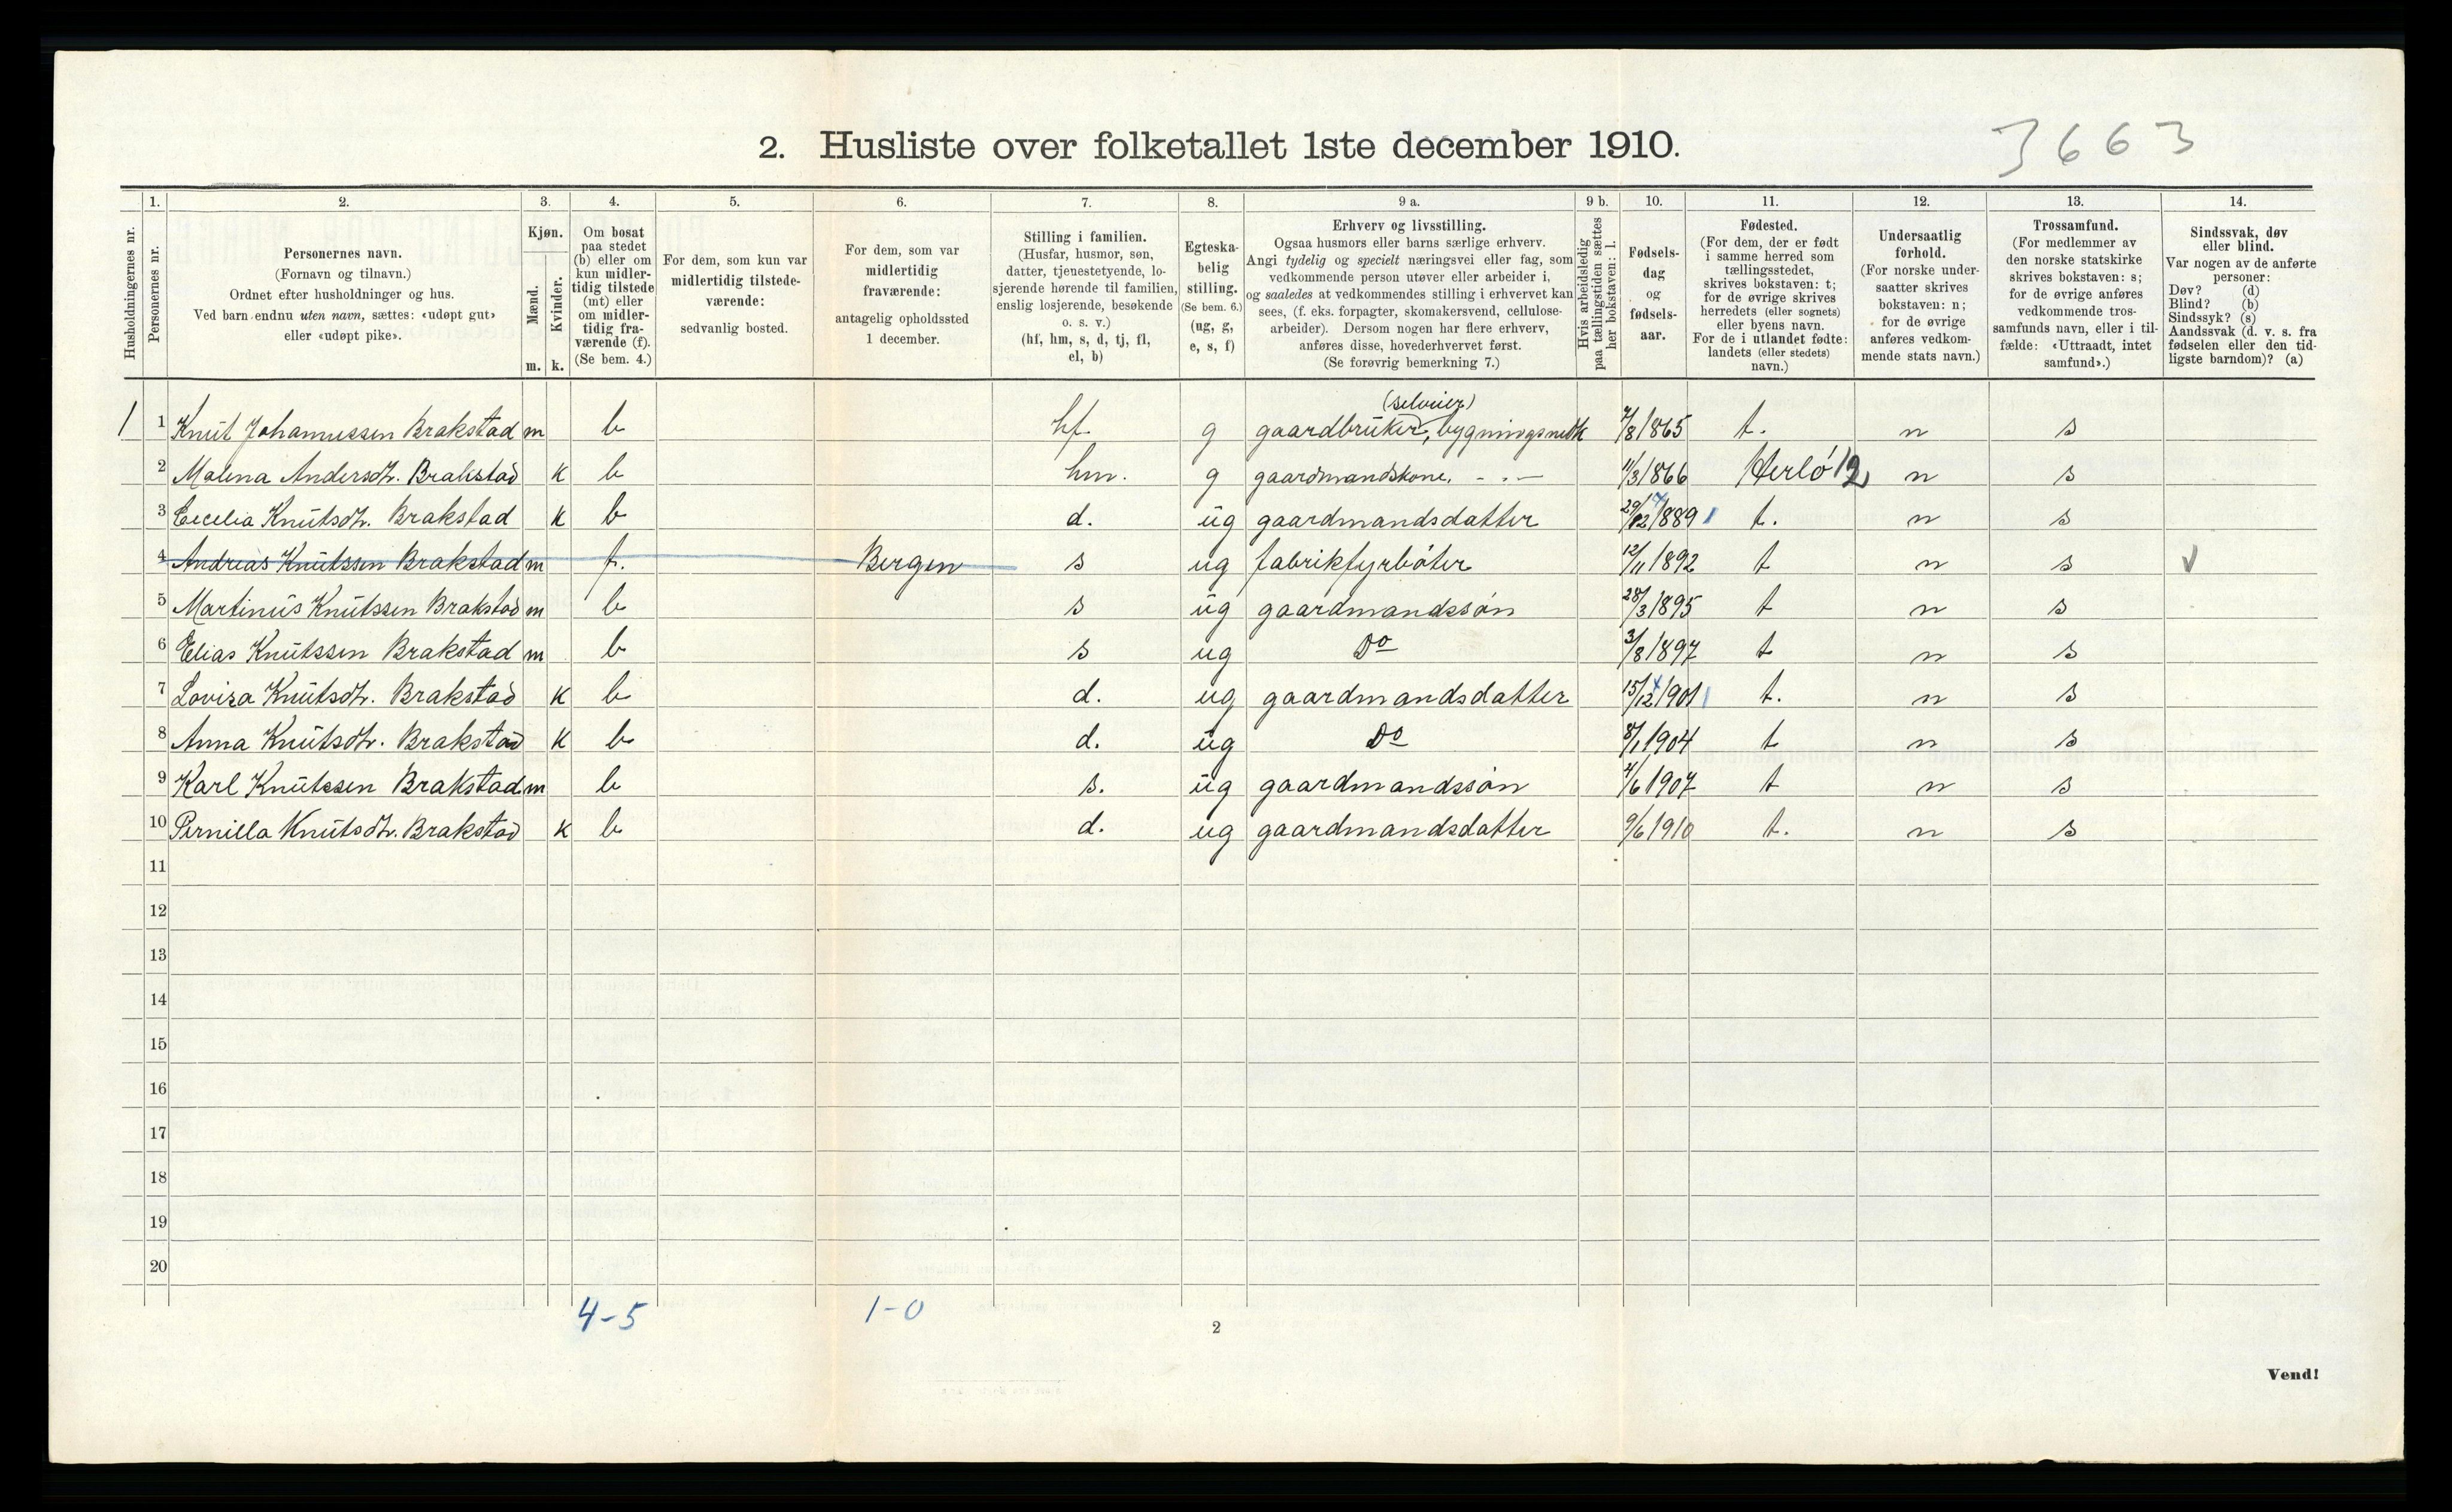 2. Husliste over folketallet 1ste december 1910.
3663
Husholdningernes nr.
1.
Personernes nr.
2.
Personernes navn.
(Fornavn og tilnavn.)
Ordnet efter husholdninger og hus.
Ved barn endnu uten navn, sættes: «udøpt gut»
eller «udøpt pike».
3.
Kjøn.
Mænd.
Kvinder.
m. k.
4.
Om bosat
paa stedet
(b) eller om
kun midler-
tidig tilstede
(mt) eller
om midler-
tidig fra-
værende (f).
(Se bem. 4.)
5.
For dem, som kun var
midlertidig tilstede-
værende:
sedvanlig bosted.
6.
For dem, som var
midlertidig
fraværende:
antagelig opholdssted
1 december.
7.
Stilling i familien.
(Husfar, husmor, søn,
datter, tjenestetyende, lo-
sjerende hørende til familien,
enslig losjerende, besøkende
o. s. v.)
(hf, hm, s, d, tj, fl,
el, b)
8.
Egteska-
belig
stilling.
(Se bem. 6.)
(ug, g,
e, s, f)
9 a.
Erhverv og livsstilling.
Ogsaa husmors eller barns særlige erhverv.
Angi tydelig og specielt næringsvei eller fag, som
vedkommende person utøver eller arbeider i,
og saaledes at vedkommendes stilling i erhvervet kan
sees, (f. eks. forpagter, skomakersvend, cellulose-
arbeider). Dersom nogen har flere erhverv,
anføres disse, hovederhvervet først.
(Se forøvrig bemerkning 7.)
9 b.
Hvis arbeidsledig
paa tællingstiden sættes
her bokstaven: l.
10.
Fødsels-
dag
og
fødsels-
aar.
11.
Fødested.
(For dem, der er født
i samme herred som
tællingsstedet,
skrives bokstaven: t;
for de øvrige skrives
herredets (eller sognets)
eller byens navn.
For de i utlandet fødte:
landets (eller stedets)
navn.)
12.
Undersaatlig
forhold.
(For norske under-
saatter skrives
bokstaven: n;
for de øvrige
anføres vedkom-
mende stats navn.)
13.
Trossamfund.
(For medlemmer av
den norske statskirke
skrives bokstaven: s;
for de øvrige anføres
vedkommende tros-
samfunds navn, eller i til-
fælde: «Uttraadt, intet
samfund».)
14.
Sindssvak, døv
eller blind.
Var nogen av de anførte
personer:
Døv? (d)
Blind? (b)
Sindssyk? (s)
Aandssvak (d. v. s. fra
fødselen eller den tid-
ligste barndom)? (a)
(selveier)
1 1 Knut Johannessen Brakstad m b hf g gaardbruker, bygningsnedk 7/8 1865 t. n s
2 Malena Andersdtr. Brakstad k b hm. g gaardmandskone. - " - 11/3 1866 Herlö 12 n s
3 Cecelia Knutsdtr. Brakstad k b d. ug gaardmandsdatter 29/12 1889 t. n s
4 Andreas Knutssen Brakstad m f. Bergen s ug fabrikfyrböter 12/11 1892 t n s
5 Martinus Knutssen Brakstad m b s ug gaardmandssön 28/3 1895 t n s
6 Elias Knutssen Brakstad m b s ug Do 3/8 1897 t n s
7 Lovisa Knutsdtr. Brakstad k b d. ug gaardmandsdatter 15/12 1901 t. n s
8 Anna Knutsdtr. Brakstad k b d. ug Do 8/1 1904 t n s
9 Karl Knutssen Brakstad m b s. ug gaardmandssön 4/6 1907 t n s
10 Pernilla Knutsdtr. Brakstad k b d. ug gaardmandsdatter 9/6 1910 t. n s
11
12
13
14
15
16
17
18
19
20
4-5 1-0
2
Vend!